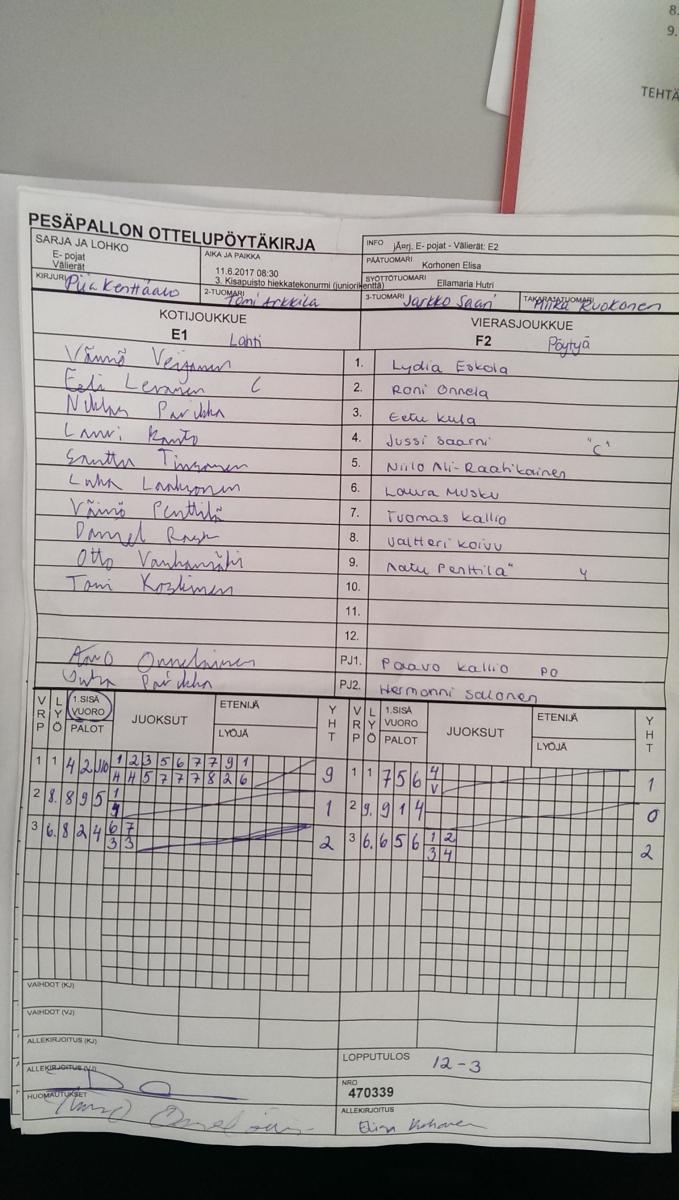 8.
9.
TEHTÄ
PESÄPALLON OTTELUPÖYTÄKIRJA
SARJA JA LOHKO
E- pojat
Välierät
AIKA JA PAIKKA
11.6.2017 08:30
3. Kisapuisto hiekkatekonurmi (juniorikenttä)
INFO jÃ¤rj. E- pojat - Välierät: E2
PÄÄTUOMARI Korhonen Elisa
SYÖTTÖTUOMARI Ellamaria Hutri
KIRJURI Piia Kenttäavo
2-TUOMARI Tomi Arkkila
3-TUOMARI Jarkko Saari
TAKARAJATUOMARI Miika Ruokonen
KOTIJOUKKUE
E1 Lahti
VIERASJOUKKUE
F2 Pöytyä
Väinö 1. Lydia Eskola
Eeli C 2. Roni Onnela
Niklas Parikka 3. Eetu Kula
Lauri Kanto 4. Jussi Saarni "C"
Santtu 5. Niilo Ali-Raatikainen
Luka Laaksonen 6. Laura Musku
Väinö Penttilä 7. Tuomas Kallio
Daniel 8. Valtteri Koivu
Otto 9. Aatu Penttilä 4
Tomi 10.
11.
12.
Arvo PJ1. Paavo Kallio PO
Juha Parikka PJ2. Hermanni Salonen
VRP LYÖ 1.SISÄ VUORO PALOT JUOKSUT ETENIJÄ LYÖJÄ YHT VRP LYÖ 1.SISÄ VUORO PALOT JUOKSUT ETENIJÄ LYÖJÄ YHT
1 1 4 2 1 2 3 5 6 7 7 9 1 9 1 1 7 5 6 4 1
4 4 5 7 7 7 8 2 6 V
2 8. 8 9 5 1 1 2 9. 9 1 4 0
9
3 6. 8 2 4 6 7 2 3 6. 6 5 6 1 2 2
3 3 3 4
VAIHDOT (KJ)
VAIHDOT (VJ)
ALLEKIRJOITUS (KJ)
LOPPUTULOS 12-3
ALLEKIRJOITUS (VJ)
NRO
470339
HUOMAUTUKSET
ALLEKIRJOITUS
Elisa Korhonen